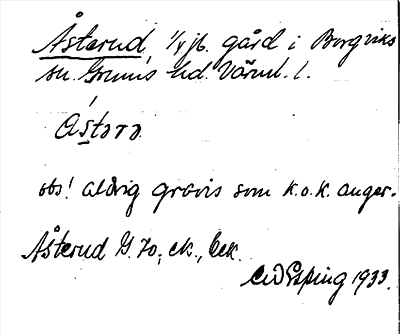 Åsterud, 1/4 jb. gård i Borgviks
sn. Grums hd. Värml. l.
Ástərə
obs! aldrig gravis som K.o.K. anger.
Åsterud G. Jo., ek., bek.
C W Esping 1933.